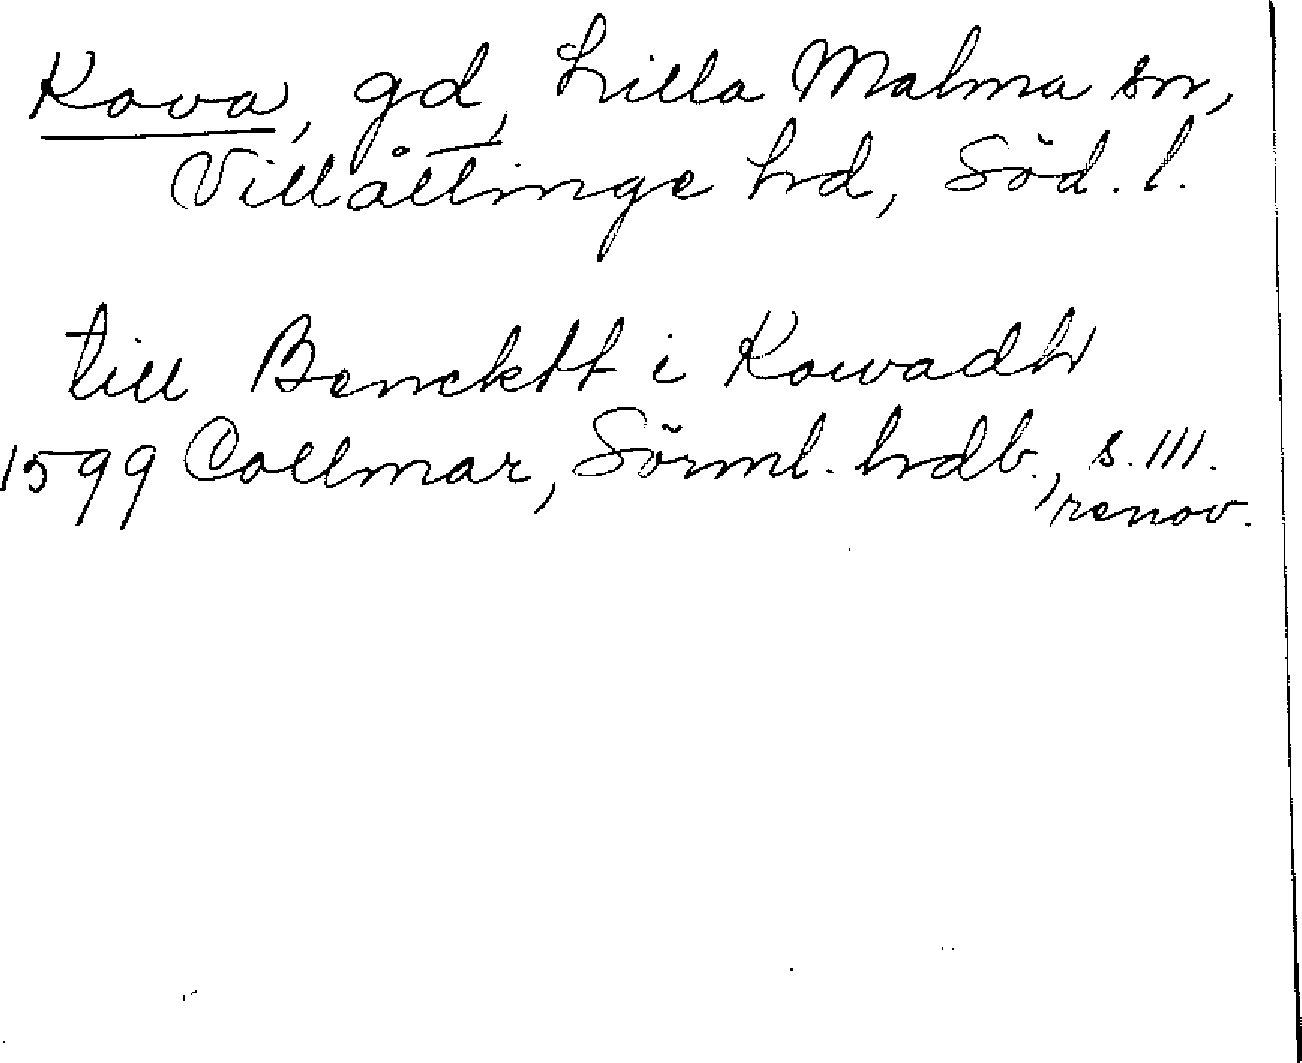 Kova, gd, Lilla Malma sn,
Villåttinge hd, Söd. l.
till Bencktt i Kowadh
1599 Collmar, Sörml. hdb., s. 111.
renov.